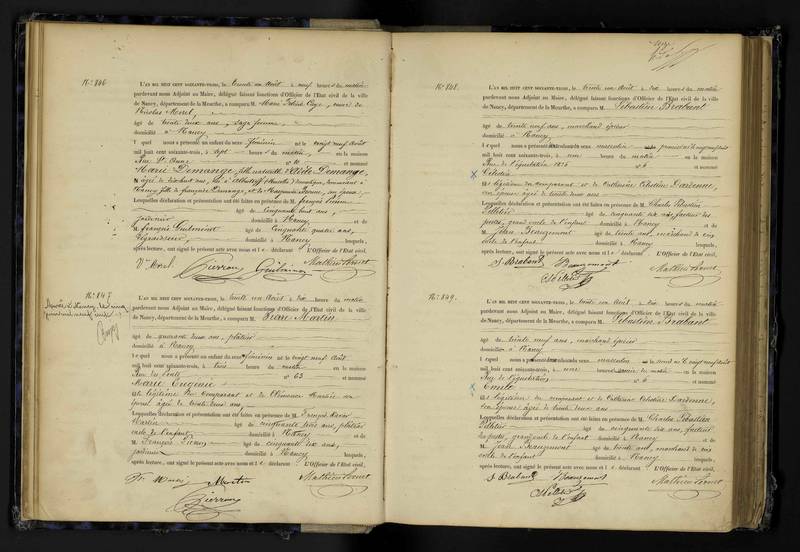 N.° 846
L'AN MIL HUIT CENT SOIXANTE-TROIS, le trente un Août à neuf heures du matin
pardevant nous Adjoint au Maire, délégué faisant fonctions d'Officier de l'Etat civil de la ville
de Nancy, département de la Meurthe, a comparu M. Marie
Nicolas Morel,
âgé de trente deux ans, sage femme,
domicilié à Nancy
l quel nous a présenté un enfant du sexe féminin né le vingt neuf Août
mil huit cent soixante-trois, à sept heures du matin, en la maison
Rue St n.° 10 et nommé
Marie Demange, fille naturelle d' Demange,
âgée de dix huit ans, née à domestique, demeurant à
Nancy fille de françois Demange, et de Marguerite son épouse,
Lesquelles déclaration et présentation ont été faites en présence de M. françois Pierron
âgé de cinquante huit ans,
jardinier domicilié à Nancy et de
M. françois âgé de cinquante quatre ans,
domicilié à Nancy lesquels,
après lecture, ont signé le présent acte avec nous et l e déclarant L'Officier de l'Etat civil,
Ve Morel Pierron Mathieu
N.° 847
L'AN MIL HUIT CENT SOIXANTE-TROIS, le trente un Août à dix heures du matin
pardevant nous Adjoint au Maire, délégué faisant fonctions d'Officier de l'Etat civil de la ville
de Nancy, département de la Meurthe, a comparu M. Pierre Martin
âgé de quarante deux ans, plâtrier
domicilié à Nancy
l e quel nous a présenté un enfant du sexe féminin né le vingt neuf Août
mil huit cent soixante-trois, à trois heures du matin en la maison
Rue du n.° 63 et nommé
Marie Eugénie
et légitime du comparant et de Clémence Martin son
épouse âgée de trente deux ans
Lesquelles déclaration et présentation ont été faites en présence de M. François Xavier
Martin âgé de cinquante trois ans, plâtrier
oncle de l'enfant domicilié à Nancy et de
M. François Pierron âgé de cinquante dix ans,
jardinier domicilié à Nancy lesquels,
après lecture, ont signé le présent acte avec nous et l e déclarant L'Officier de l'Etat civil,
Martin Mathieu
Pierron
N.° 848.
L'AN MIL HUIT CENT SOIXANTE-TROIS, le trente un Août à dix heures du matin
pardevant nous Adjoint au Maire, délégué faisant fonctions d'Officier de l'Etat civil de la ville
de Nancy, département de la Meurthe, a comparu M. Sébastien Brabant
âgé de trente neuf ans, marchand épicier
domicilié à Nancy
l e quel nous a présenté un enfant du sexe masculin
mil huit cent soixante-trois, à une heure du matin en la maison
Rue de l'équitation n.° 6 et nommé
Célestin
et légitime du comparant et de Catherine Célestine Dardenne,
son épouse âgée de trente deux ans
Lesquelles déclaration et présentation ont été faites en présence de M. Charles Sébastien
Pelletier âgé de cinquante dix ans, facteur des
postes, grand oncle de l'enfant domicilié à Nancy et de
M. Jean Beaugemont âgé de trente ans, marchand de vin
oncle de l'enfant domicilié à Nancy lesquels,
après lecture, ont signé le présent acte avec nous et l e déclarant L'Officier de l'Etat civil,
S Brabant Beaugemont Mathieu
N.° 849.
L'AN MIL HUIT CENT SOIXANTE-TROIS, le trente un Août à dix heures du matin
pardevant nous Adjoint au Maire, délégué faisant fonctions d'Officier de l'Etat civil de la ville
de Nancy, département de la Meurthe, a comparu M. Sébastien Brabant
âgé de trente neuf ans, marchand épicier
domicilié à Nancy
l e quel nous a présenté un enfant du sexe masculin
mil huit cent soixante-trois, à une heure du matin en la maison
Rue de l'équitation n.° 6 et nommé
Emile
et légitime du comparant et de Catherine Célestine Dardenne,
son épouse âgée de trente deux ans
Lesquelles déclaration et présentation ont été faites en présence de M. Charles Sébastien
Pelletier âgé de cinquante dix ans, facteur
des postes, grand oncle de l'enfant domicilié à Nancy et de
M. Jean Beaugemont âgé de trente ans, marchand de vin
oncle de l'enfant domicilié à Nancy lesquels,
après lecture, ont signé le présent acte avec nous et l e déclarant L'Officier de l'Etat civil,
S Brabant Beaugemont Mathieu